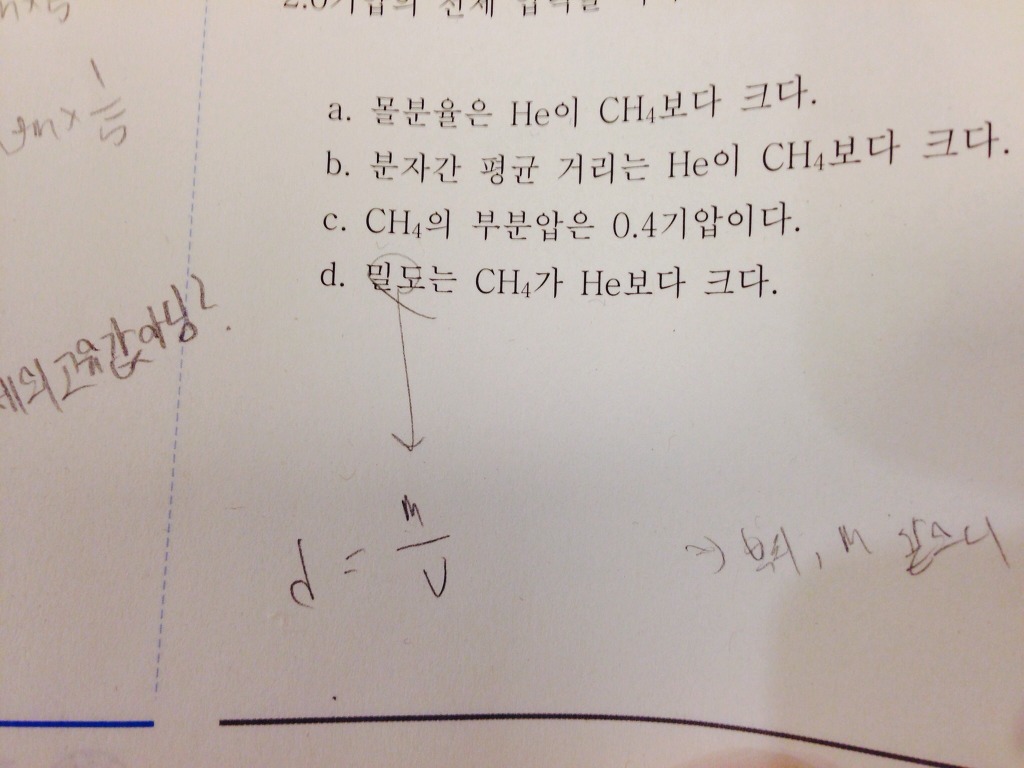 2.0기압의 전체 압력을
a. 몰분율은 He이 CH₄보다 크다.
b. 분자간 평균 거리는 He이 CH₄보다 크다.
c. CH₄의 부분압은 0.4기압이다.
d. 밀도는 CH₄가 He보다 크다.
× 1/5
의 고유값 아닝?
d = m/V
→ 부피, m 같으니